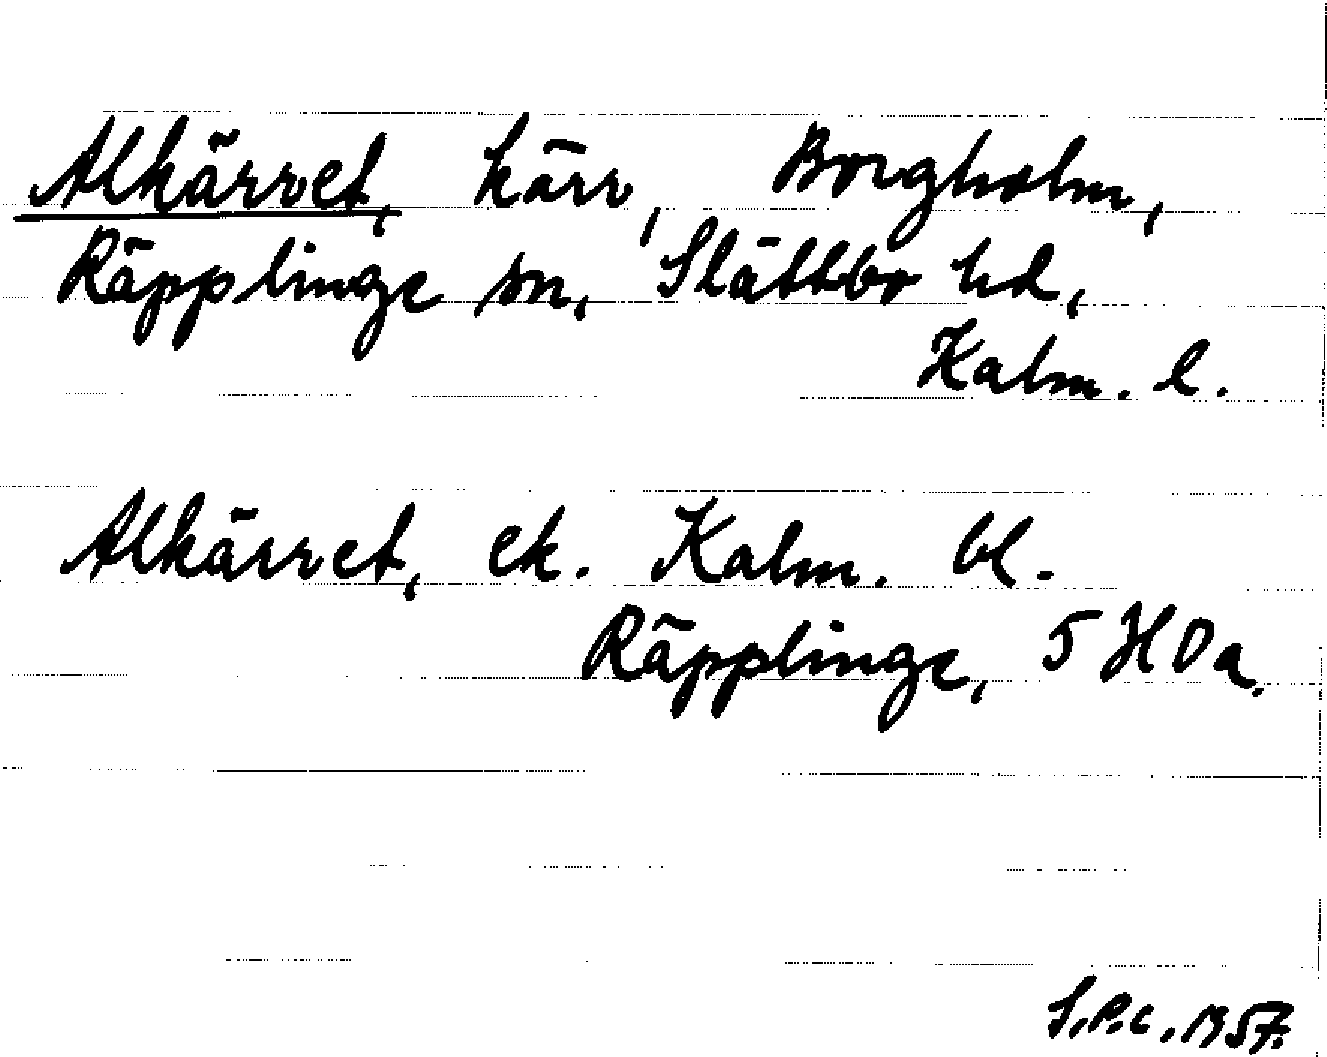 Alkärret, kärr, Borgholm,
Räpplinge sn, Slättbo hd,
Kalm. l.
Alkärret, ek. Kalm. bl.
Räpplinge, 5 H Da.
S.P.C., 1957.